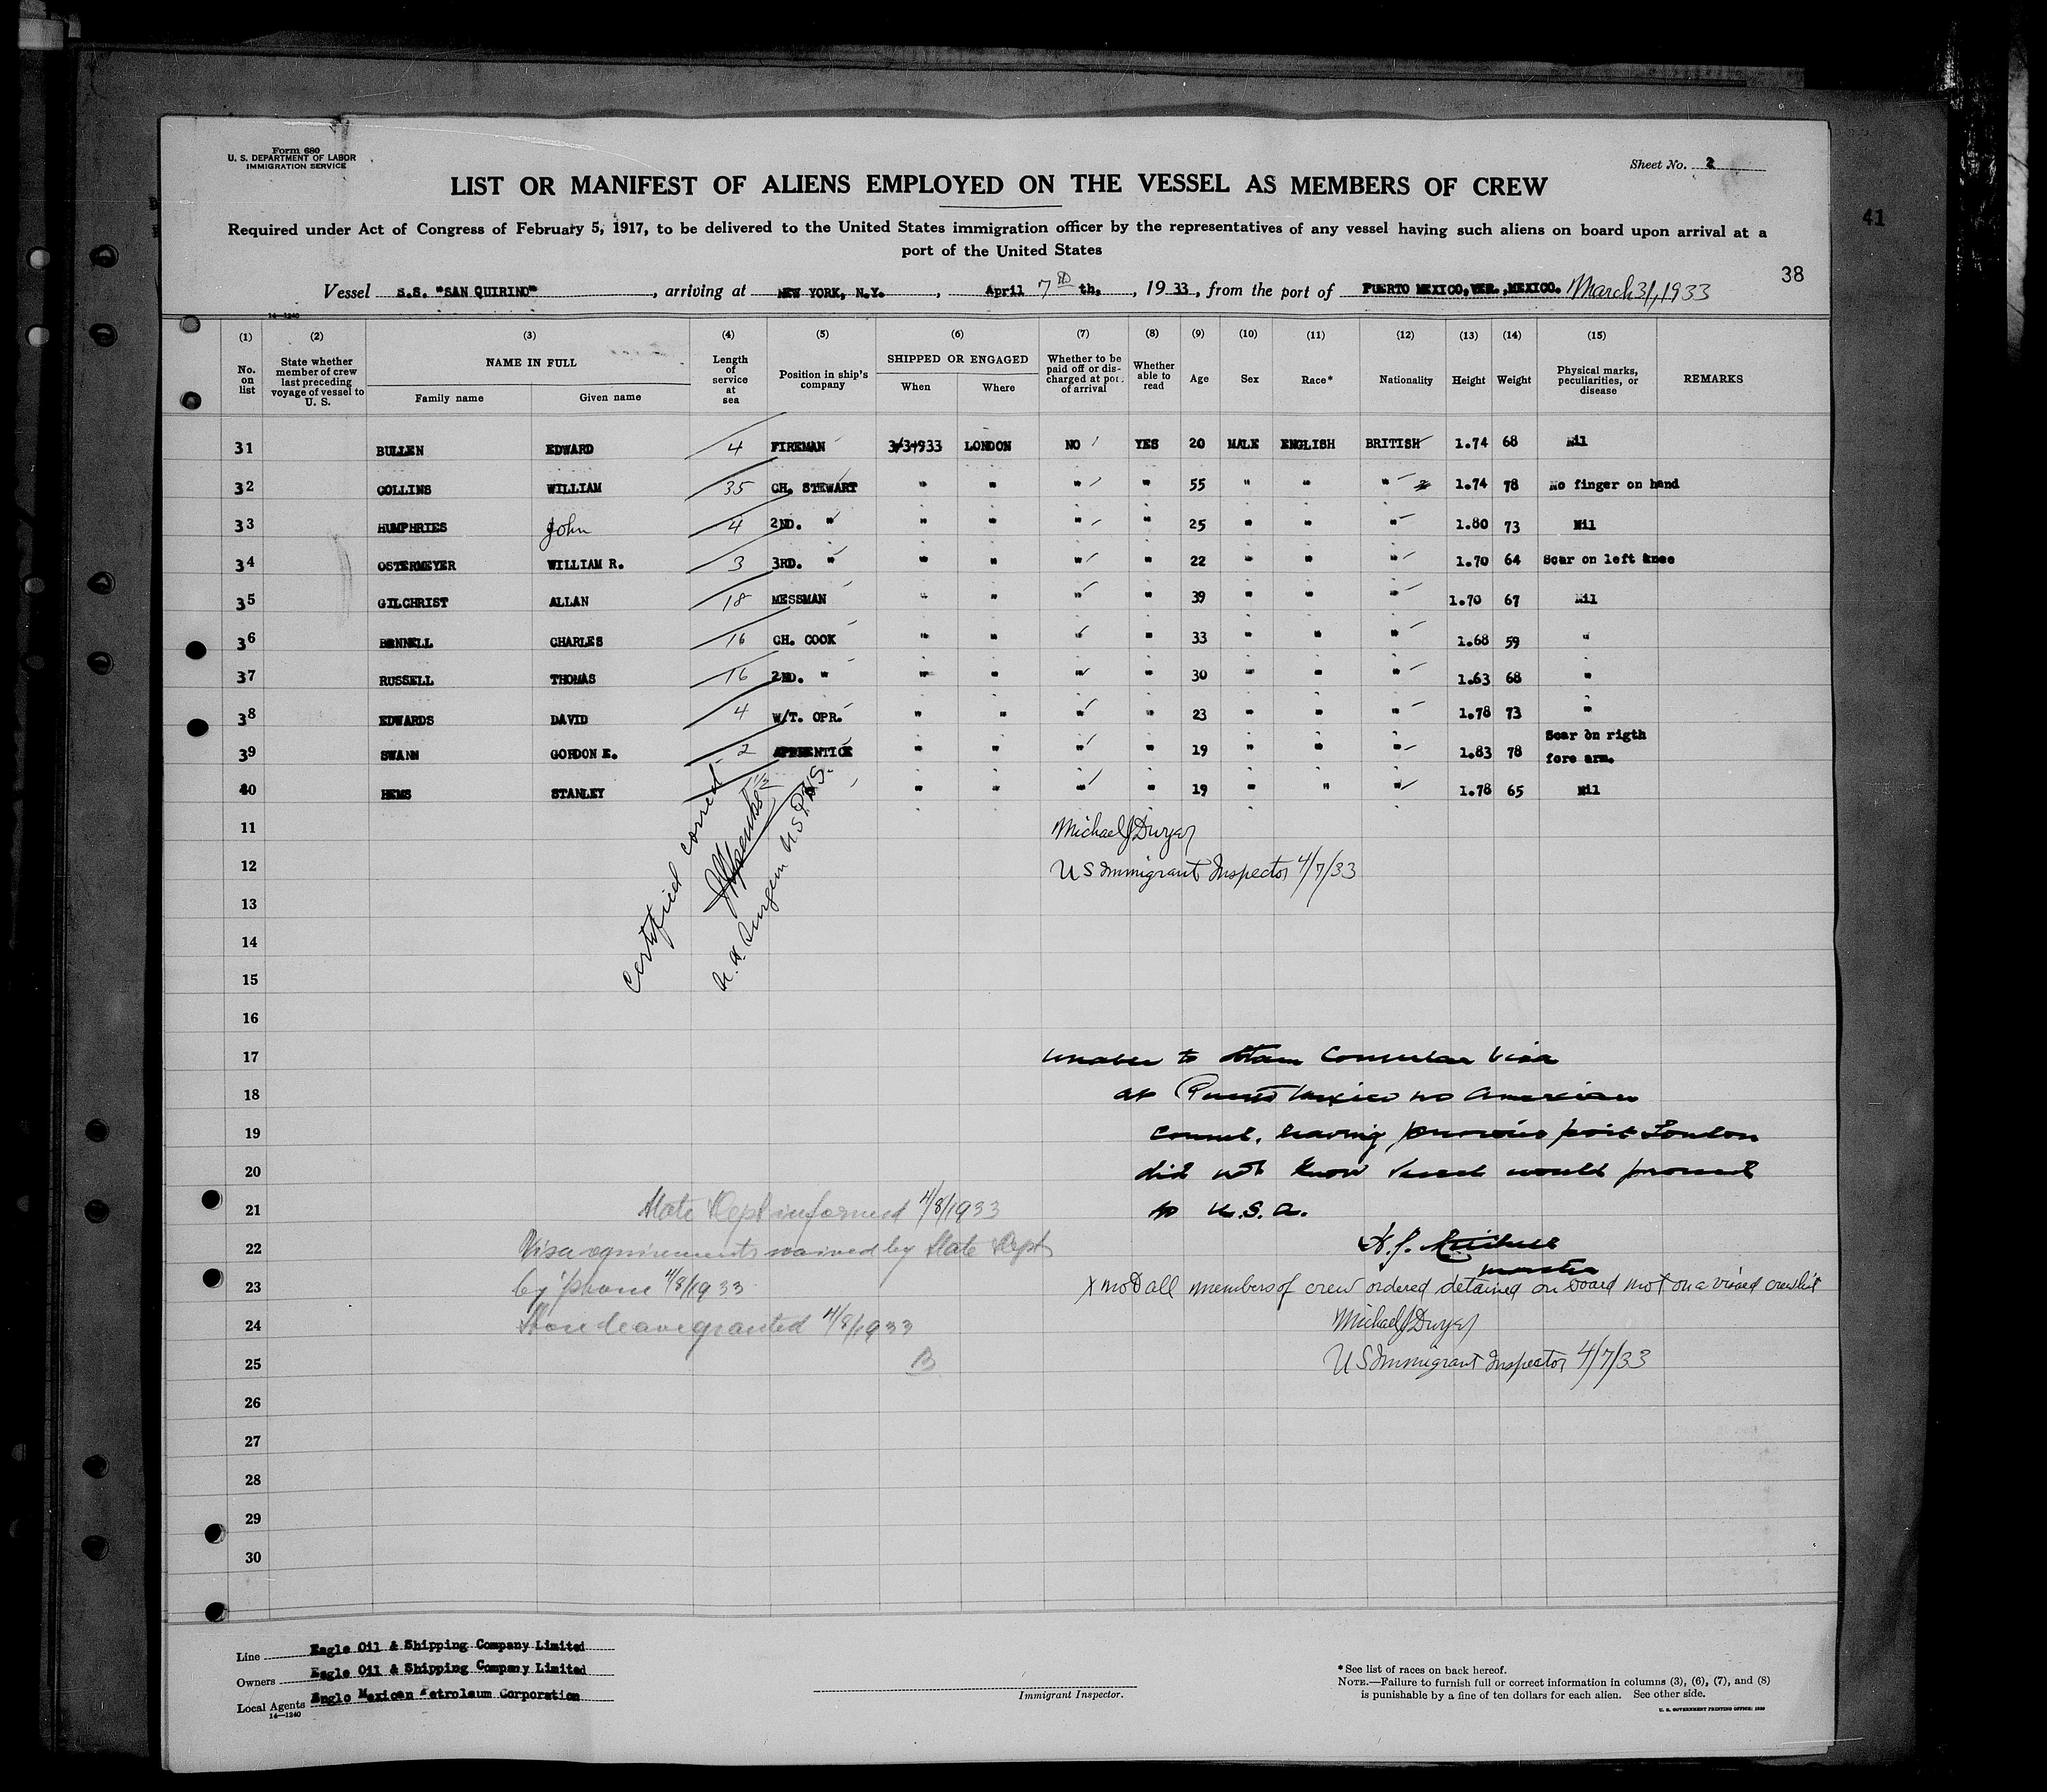 Form 680
U. S. DEPARTMENT OF LABOR
IMMIGRATION SERVICE
Sheet No. 2
LIST OR MANIFEST OF ALIENS EMPLOYED ON THE VESSEL AS MEMBERS OF CREW
41
Required under Act of Congress of February 5, 1917, to be delivered to the United States immigration officer by the representatives of any vessel having such aliens on board upon arrival at a
port of the United States
38
Vessel S.S. "SAN QUIRINO", arriving at NEW YORK, N.Y., April 7th th, 1933, from the port of PUERTO MEXICO, VER., MEXICO. March 31, 1933
14—1240
(1) (2) (3) (4) (5) (6) (7) (8) (9) (10) (11) (12) (13) (14) (15)
No. on list State whether member of crew last preceding voyage of vessel to U. S. NAME IN FULL Family name Given name Length of service at sea Position in ship's company SHIPPED OR ENGAGED When Where Whether to be paid off or discharged at port of arrival Whether able to read Age Sex Race* Nationality Height Weight Physical marks, peculiarities, or disease REMARKS
31 BULLEN EDWARD 4 FIREMAN 3/3+933 LONDON NO YES 20 MALE ENGLISH BRITISH 1.74 68 Nil
32 COLLINS WILLIAM 35 CH. STEWART " " " " 55 " " " 1.74 78 No finger on hand
33 HUMPHRIES John 4 2ND. " " " " " 25 " " " 1.80 73 Nil
34 OSTERMEYER WILLIAM R. 3 3RD. " " " " " 22 " " " 1.70 64 Scar on left knee
35 GILCHRIST ALLAN 18 MESSMAN " " " " 39 " " " 1.70 67 Nil
36 BENNELL CHARLES 16 CH. COOK " " " " 33 " " " 1.68 59 "
37 RUSSELL THOMAS 16 2ND. " " " " " 30 " " " 1.63 68 "
38 EDWARDS DAVID 4 W/T. OPR. " " " " 23 " " " 1.78 73 "
39 SWANN GORDON E. 2 APPRENTICE " " " " 19 " " " 1.83 78 Scar on rigth fore arm.
40 HEMS STANLEY 1 1/2 " " " " 19 " " " 1.78 65 Nil
Certified correct
A. A. Surgeon U S P.H.S.
11 Michael J Dwyer
12 US Immigrant Inspector 4/7/33
13
14
15
16
17 unable to obtain Consular Visa
18 at Puerto Mexico no American
19 Consul. having previous port London
20 did not know Vessel would proceed
21 State Dept informed 4/8/1933 to U.S.A.
22 Visa requirements waived by State Dept H. J.
master
23 by 'phone 4/8/1933 all members of crew ordered detained on board not on a visaed crew list
24 Shore leave granted 4/8/1933 Michael J Dwyer
25 B US Immigrant Inspector 4/7/33
26
27
28
29
30
Line Eagle Oil & Shipping Company Limited
Owners Eagle Oil & Shipping Company Limited
Local Agents Anglo Mexican Petroleum Corporation
14—1240
Immigrant Inspector.
*See list of races on back hereof.
NOTE.—Failure to furnish full or correct information in columns (3), (6), (7), and (8)
is punishable by a fine of ten dollars for each alien. See other side.